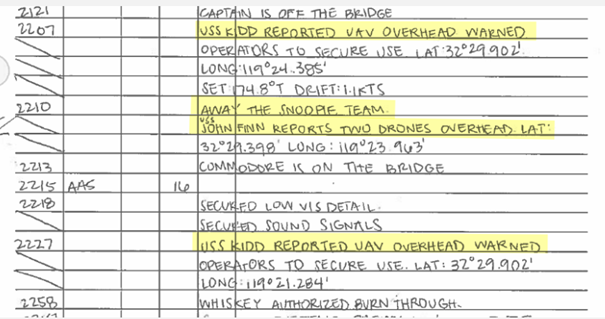 2121 CAPTAIN IS OFF THE BRIDGE
2207 USS KIDD REPORTED UAV OVERHEAD WARNED
OPERATORS TO SECURE USE. LAT: 32°29.902'
LONG: 119°24.385'
SET: 174.8°T DRIFT: 1.1KTS
2210 AWAY THE SNOOPIE TEAM.
USS JOHN FINN REPORTS TWO DRONES OVERHEAD. LAT:
32°29.398' LONG: 119°23.963'
2213 COMMODORE IS ON THE BRIDGE
2215 AAS 16
2218 SECURED LOW VIS DETAIL.
SECURED SOUND SIGNALS
2227 USS KIDD REPORTED UAV OVERHEAD WARNED
OPERATORS TO SECURE USE. LAT: 32°29.902'
LONG: 119°21.284'
2258 WHISKEY AUTHORIZED BURN THROUGH.